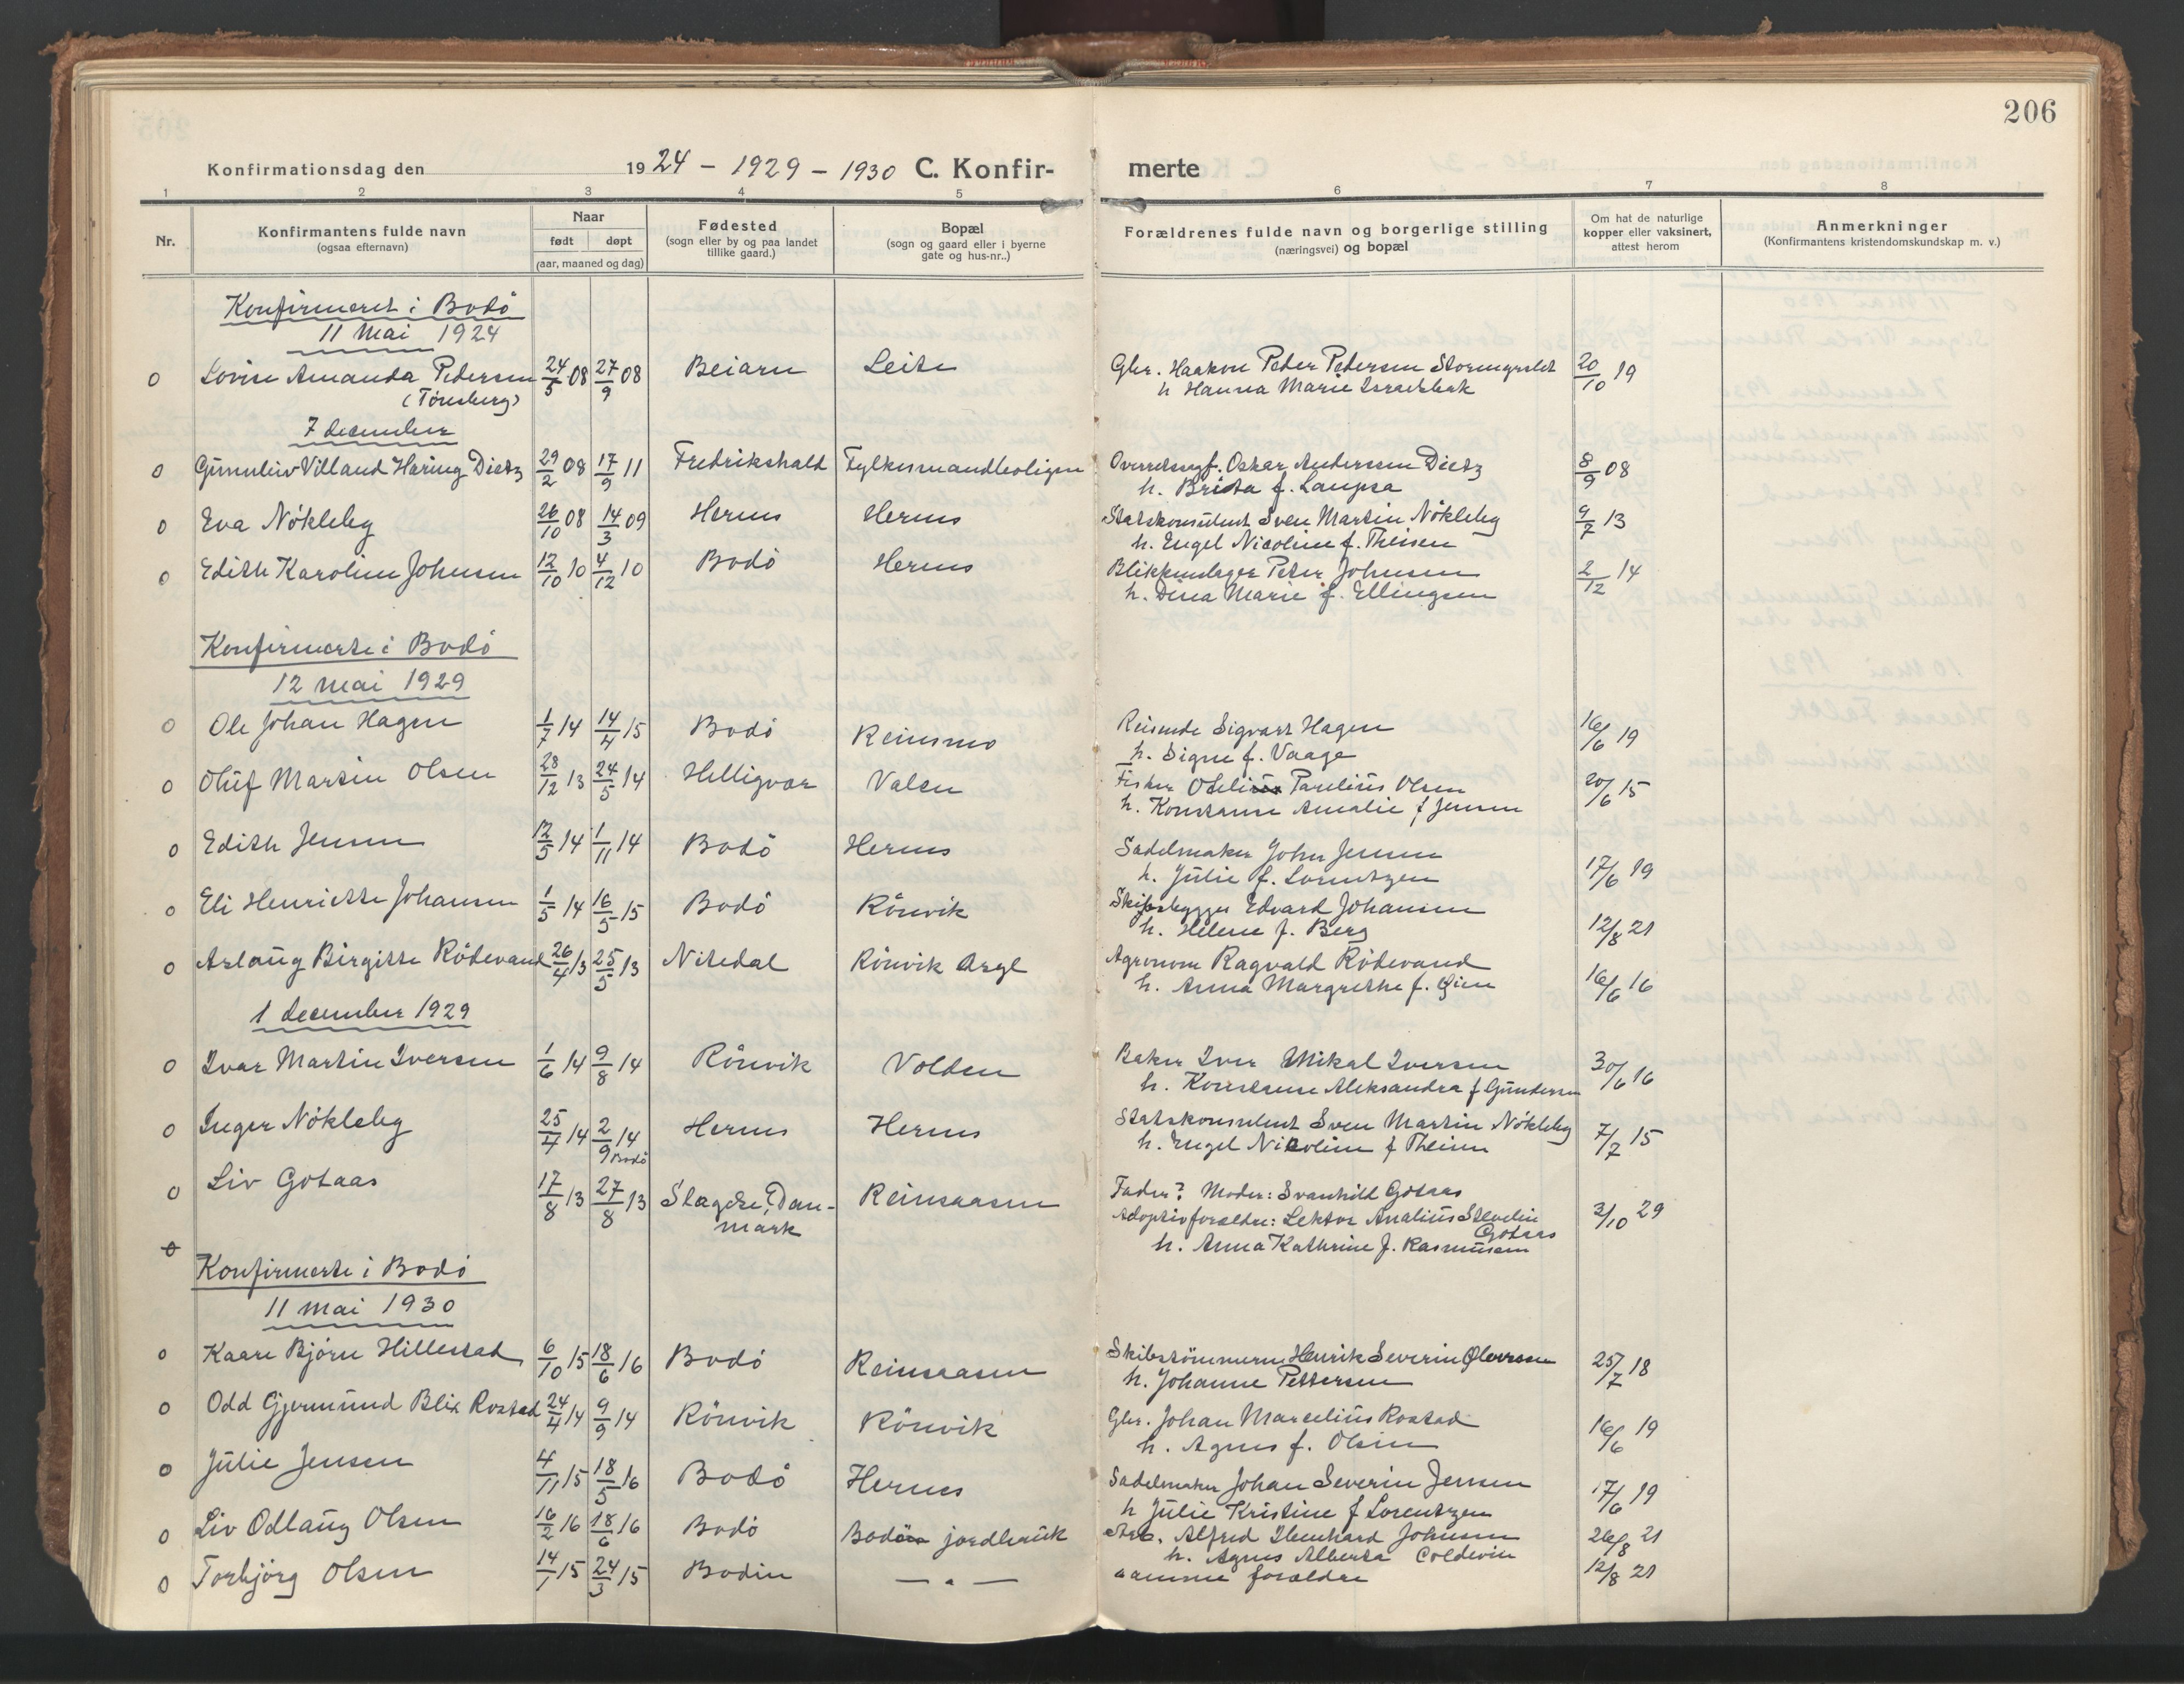 206
Konfirmationsdag den 1924 - 1929 - 1930 C. Konfir- merte
1 2 3 4 5 6 7 8
Nr.
Konfirmantens fulde navn
(ogsaa efternavn)
Naar
født døpt
(aar, maaned og dag)
Fødested
(sogn eller by og paa landet
tillike gaard.)
Bopæl
(sogn og gaard eller i byerne
gate og hus-nr..)
Forældrenes fulde navn og borgerlige stilling
(næringsvei) og bopæl
Om hat de naturlige
kopper eller vaksinert,
attest herom
Anmerkninger
(Konfirmantens kristendomskundskap m. v.)
Konfirmeret i Bodö
11 Mai 1924
o Lovise Amanda Pedersen 24/5 08 27/9 08 Beiarn Leite Gbr. Haakon Peder Pedersen 20/10 19
(Tönsberg) h Hanna Marie
7 december
o Gunnleiv Villand Haring Dietz 29/2 08 17/9 11 Fredrikshald Fylkesmandboligen Overretssagf. Oskar Anderssen Dietz 8/9 08
h. Brita f. Laupsa
o Eva Nökleby 26/10 08 14/3 09 Hernes Hernes Statskonsulent Sven Martin Nökleby 9/7 13
h. Engel Nicoline f. Theisen
o Edith Karoline Johnsen 12/10 10 4/12 10 Bodö Hernes Blikkenslager Peter Johnsen 2/12 14
h. Dina Marie f. Ellingsen
Konfirmerte i Bodö
12 mai 1929
o Ole Johan Hagen 1/7 14 14/4 15 Bodö Reinsmo Reisende Sigvart Hagen 16/6 19
h. Signe f. Vaage
o Oluf Martin Olsen 28/12 13 24/5 14 Helligvær Valen Fisker Paulius Olsen 20/6 15
h. Konstanse Amalie f Jensen
o Edith Jensen 12/5 14 1/11 14 Bodö Hernes Sadelmaker John Jensen 17/6 19
h. Julie f. Lorentzen
o Eli Henriette Johansen 1/5 14 16/5 15 Bodö Rönvik Skibsbygger Edvard Johansen 12/8 21
h. Helene f. Berg
o Aslaug Birgitte Rödevand 26/4 13 25/5 13 Nitedal Rönvik Asyl Agronom Ragvald Rödevand 16/6 16
h. Anna Margrethe f. Øien
1 december 1929
o Ivar Martin Iversen 1/6 14 9/8 14 Rönvik Volden Baker Iver Mikal Iversen 30/6 16
h. Konstanse Aleksandra f Gundersen
o Inger Nökleby 25/4 14 2/9 14 Bodö Hernes Hernes Statskonsulent Sven Martin Nökleby 7/7 15
h. Engel Nicoline f Theisen
o Liv Gotaas 17/8 13 27/8 13 Slagelse, Dan- Reinsaasen Fader? Moder: Svanhild Gotaas 3/10 29
mark Adoptivforældre: Lektor Analius Gotaas
h. Anna Kathrine f. Rasmussen
o
Konfirmerte i Bodö
11 mai 1930
o Kaare Björn Hillestad 6/10 15 18/6 16 Bodö Reinsaasen Skibstömmerm Henrik Severin 25/7 18
h. Johanne Pettersen
o Odd Gjermund Blix Rostad 24/4 14 9/9 14 Rönvik Rönvik Gbr. Johan Marselius Rostad 16/6 19
h. Agnes f. Olsen
o Julie Jensen 4/11 15 18/5 16 Bodö Hernes Sadelmaker Johan Severin Jensen 17/6 19
h Julie Kristine f Lorentzen
o Liv Odlaug Olsen 16/2 16 18/6 16 Bodö Bodö jordbruk Arb. Alfred Johnsen 26/8 21
h. Agnes Alberta Coldevin
o Torbjörg Olsen 14/1 15 24/3 15 Bodin — " — samme forældre 12/8 21